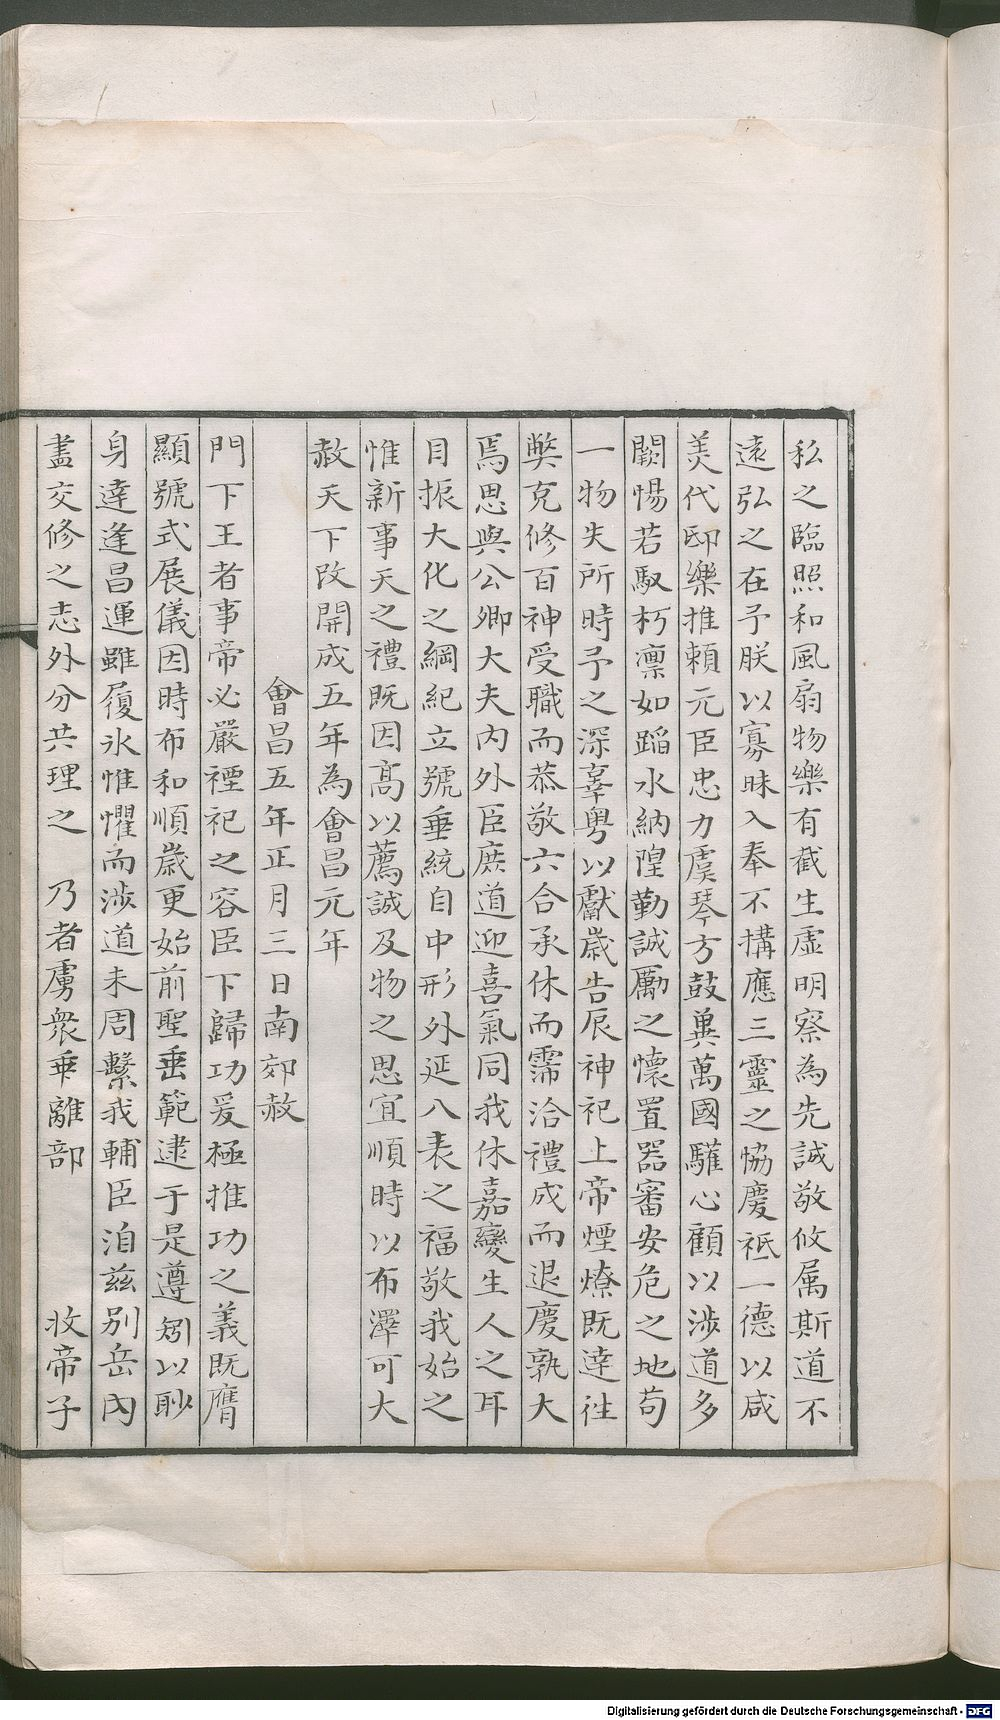 私之臨照和風扇物樂有截生虛明察為先誠敬攸属斯道不
遠弘之在予朕以寡昧入奉丕構應三靈之恊慶祗一德以咸
羙代邸樂推賴元臣忠力虞琴方鼓兾萬國驩心顧以涉道多
闕惕若馭朽凛如蹈水納隍勤誠厲之懷置器審安危之地苟
一物失所時予之深辜粤以獻歲吿辰神祀上帝煙燎既達徃
獘克修百神受職而恭敬六合承休而霈洽禮成而退慶孰大
焉思與公卿大夫內外臣庶道迎喜氣同我休嘉變生人之耳
目振大化之綱紀立號垂統自中形外延八表之福敬我始之
惟新事天之禮既因髙以薦誠及物之思宜順時以布澤可大
赦天下改開成五年為會昌元年
會昌五年正月三日南郊赦
門下王者事帝必嚴禋祀之容臣下歸功爰極推功之義既膺
顯號式展儀因時布和順歲更始前聖垂範逮于是遵矧以眇
身逹逢昌運雖履氷惟懼而涉道未周繫我輔臣洎兹别岳內
盡交修之志外分共理之 乃者虜衆乖離部 收帝子
Digitalisierung gefördert durch die Deutsche Forschungsgemeinschaft - DFG